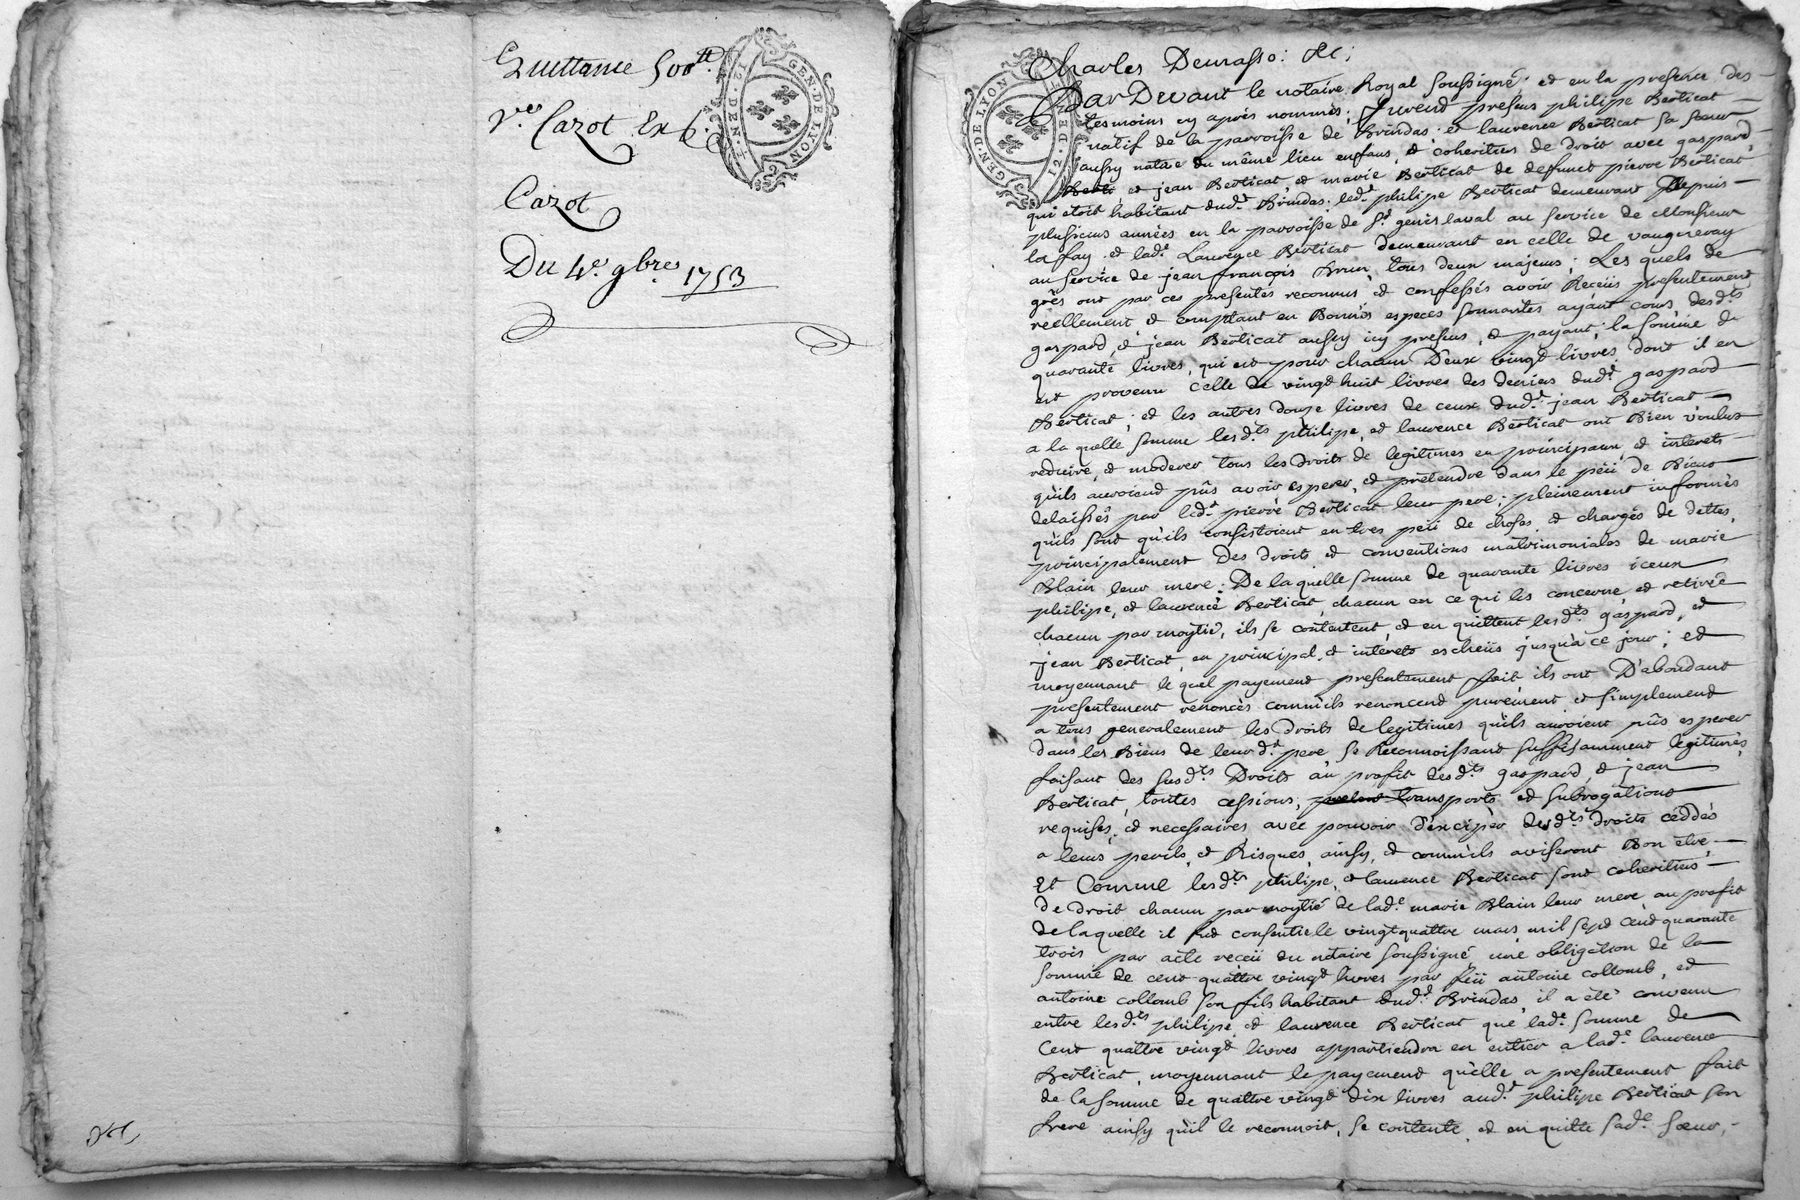 Quittance 500 tt.
Ve. Cazot Ex 6.
Cazot
Du 4e. 9bre. 1753
GEN · DE LYON
12 · DEN
Charles
Par Devant le notaire Royal soussigné; et en la presence des
tesmoins cy après nommés; furent presens philipe Berticat
natif de la parroisse de Brindas; et laurence Berticat sa soeur
aussy native du même lieu enfans, et coheritiers de droit avec gaspard,
et jean Berticat, et marie Berticat de defunct pierre Berticat
qui étoit habitant dud.t Brindas; led.t philipe Berticat demeurant Depuis
plusieurs années en la parroisse de S.t genis laval au service de Monsieur
la fay et lad.e Laurence Berticat demeurant en celle de vaugneray
au service de jean françois Brun, tous deux majeurs; Les quels de
grès ont par ces presentes reconnus, et confessés avoir Receüs presentement
reellement et comptant en Bonnes especes sonnantes ayant cours, desd.ts
gaspard, et jean Berticat aussy icy presens, et payant; la somme de
quarante livres, qui est pour chacun D'eux vingt livres, dont il en
est provenu celle de vingt huit livres des deniers dud.t gaspard
Berticat; et les autres douze livres de ceux dud.t jean Berticat
a la quelle somme lesd.ts philipe, et laurence Berticat ont Bien voulus
reduire, et moderer tous les droits de legitimes en principaux, et interets
qu'ils auroient pûs avoir esperer, et prétendre dans le peü de Biens
delaissés par led.t pierre Berticat leur pere; pleinement informés
qu'ils sont qu'ils consistoient en tres peü de choses, et chargés de dettes,
principalement Des droits et conventions matrimoniales de marie
Blain leur mere; De laquelle somme de quarante livres iceux
philipe, et laurence Berticat, chacun en ce qui les concerne et retirée
chacun par moytié, ils se contentent, et en quittent lesd.ts gaspard, et
jean Berticat, en principal, et interets escheüs jusqu'à ce jour; et
moyennant le quel payement presentement fait ils ont D'abondant
presentement renoncés comm'ils renoncent purement, et simplement
a tous generalement les droits de legitimes qu'ils auroient pûs esperer
dans les Biens de leur d.t pere se Reconnoissant suffisamment legitimés,
faisant des susd.ts Droits au profit desd.ts gaspard, et jean
Berticat, toutes cessions, transports et subrogations
requises, et necessaires avec pouvoir d'exciper desd.ts droits ceddés
a leurs perils, et Risques, ainsy, et comm'ils aviseront Bon être,
Et Comme lesd.ts philipe, et laurence Berticat sont coheritiers
de droit chacun par moytié de lad.e marie Blain leur mere, au profit
de laquelle il fut consentie le vingtquattre mars mil sept cent quarante
trois par acte receü du notaire soussigné, une obligation de la
somme de cent quattre vingt livres par feü antoine collomb, et
antoine collomb son fils habitant dud.t Brindas il a été convenu
entre lesd.ts philipe, et laurence Berticat que lad.e somme de
Cent quattre vingt livres appartiendra en entier a lad.e laurence
Berticat, moyennant le payement qu'elle a presentement fait
de la somme de quattre vingt dix livres aud.t philipe Berticat son
frere ainsy qu'il le reconnoit, se contente, et en quitte sad.e soeur,